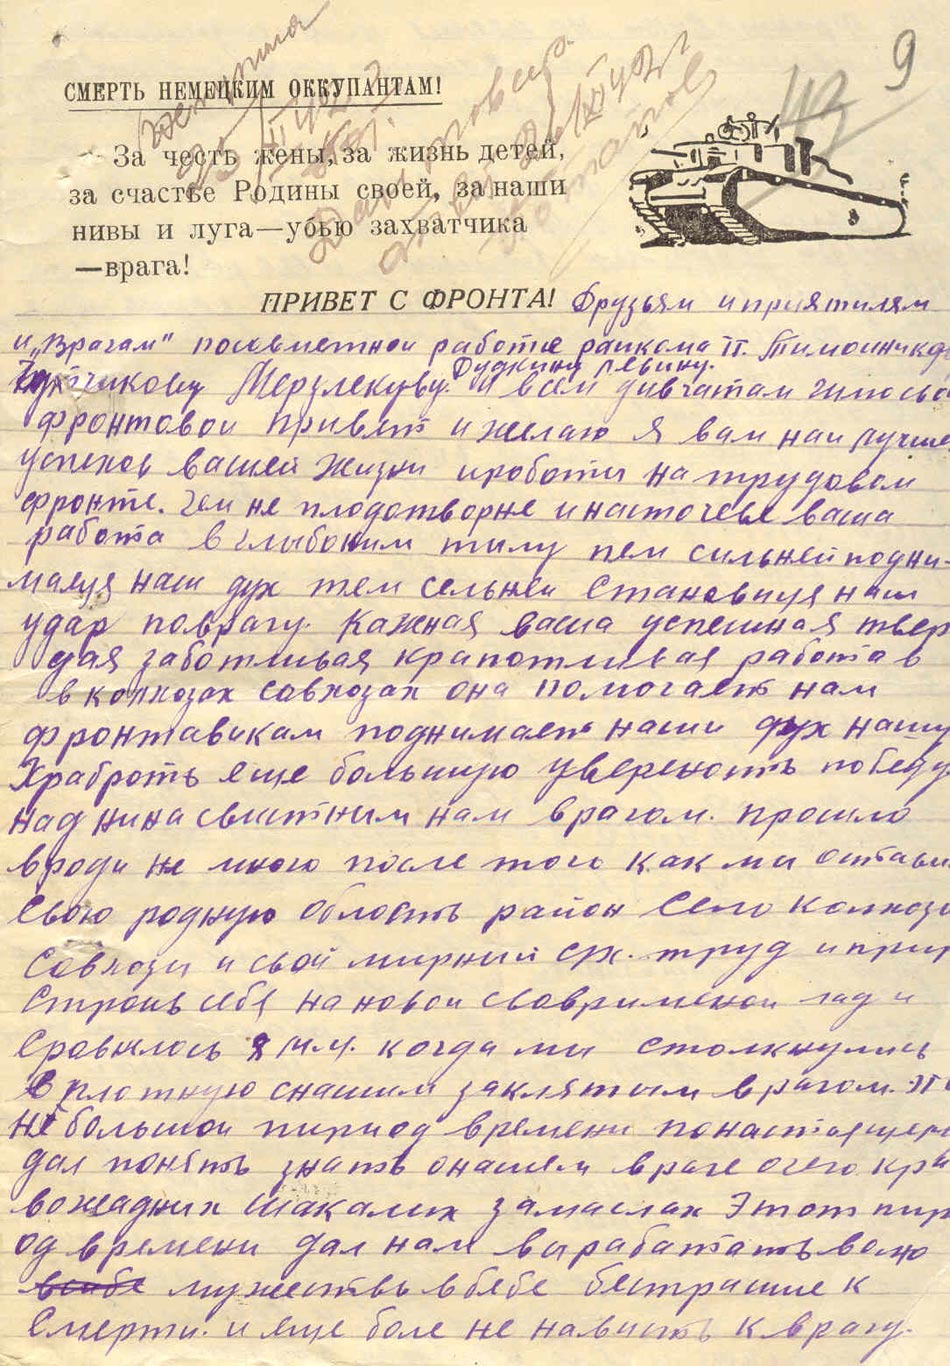 9
СМЕРТЬ НЕМЕЦКИМ ОККУПАНТАМ!
За честь жены, за жизнь детей,
за счастье Родины своей, за наши
нивы и луга—убью захватчика
—врага!
ПРИВЕТ С ФРОНТА! Друзьям и приятилям
и „Врагам" посовметной работе райкома П.
Мерзлекову. Дудкину Левину. и всем дивчатам
фронтовой привет и желаю я вам наи лучше
успехов вашей жизни и роботи на трудовом
фронте. Чем не плодотворне и насточеве ваша
работа в глыбоким тилу тем сильней подни-
маеця наш дух тем сельней Становиця наш
удар поврагу. Каждая ваша успешная твер
дая заботливая крапотливая работа в
в колхозах совхозах она помогает нам
фронтавикам поднимает наши дух нашу
Храброть еще большую уверенють победу
над нинасвистним нам врагом. прошло
вроди не много после того как ми остави
Свою родную область район Село колхози
Совхози и свой мирний сх. труд и пир
Строив себя на новой Совримений лад и
Сровнлось я м.м. когда ми столкнулись
в плотную снашим заклятым врагом. эт
не большой пириод времени понастоящем
дал понять знать онашем враге о его кра
вожадних Шакалих замаслах Этот пир
од времени дал нам вырабатать волю
мужество всебе бестрашие к
Смерти. и еще боле не нависть к врагу.